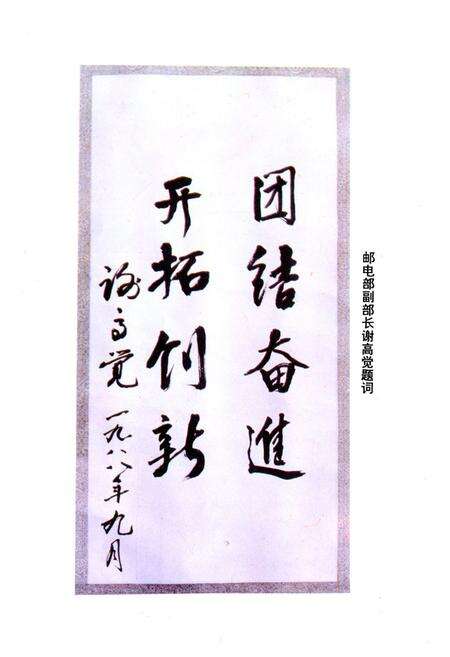 团结奋進
开拓创新
谢高觉 一九八八年九月
邮电部副部长谢高觉题词